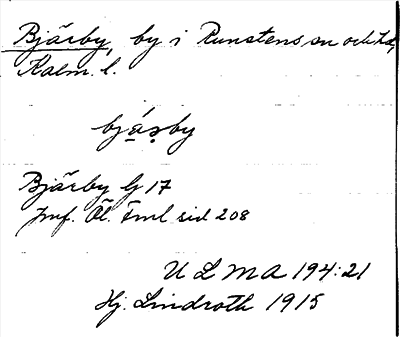 Bjärby, by i Runstens sn och hd,
Kalm. l.
bjárby
Bjärby G 17
Jmf. Öl. Fml sid 208
U L M A 194:21
Hj. Lindroth 1915